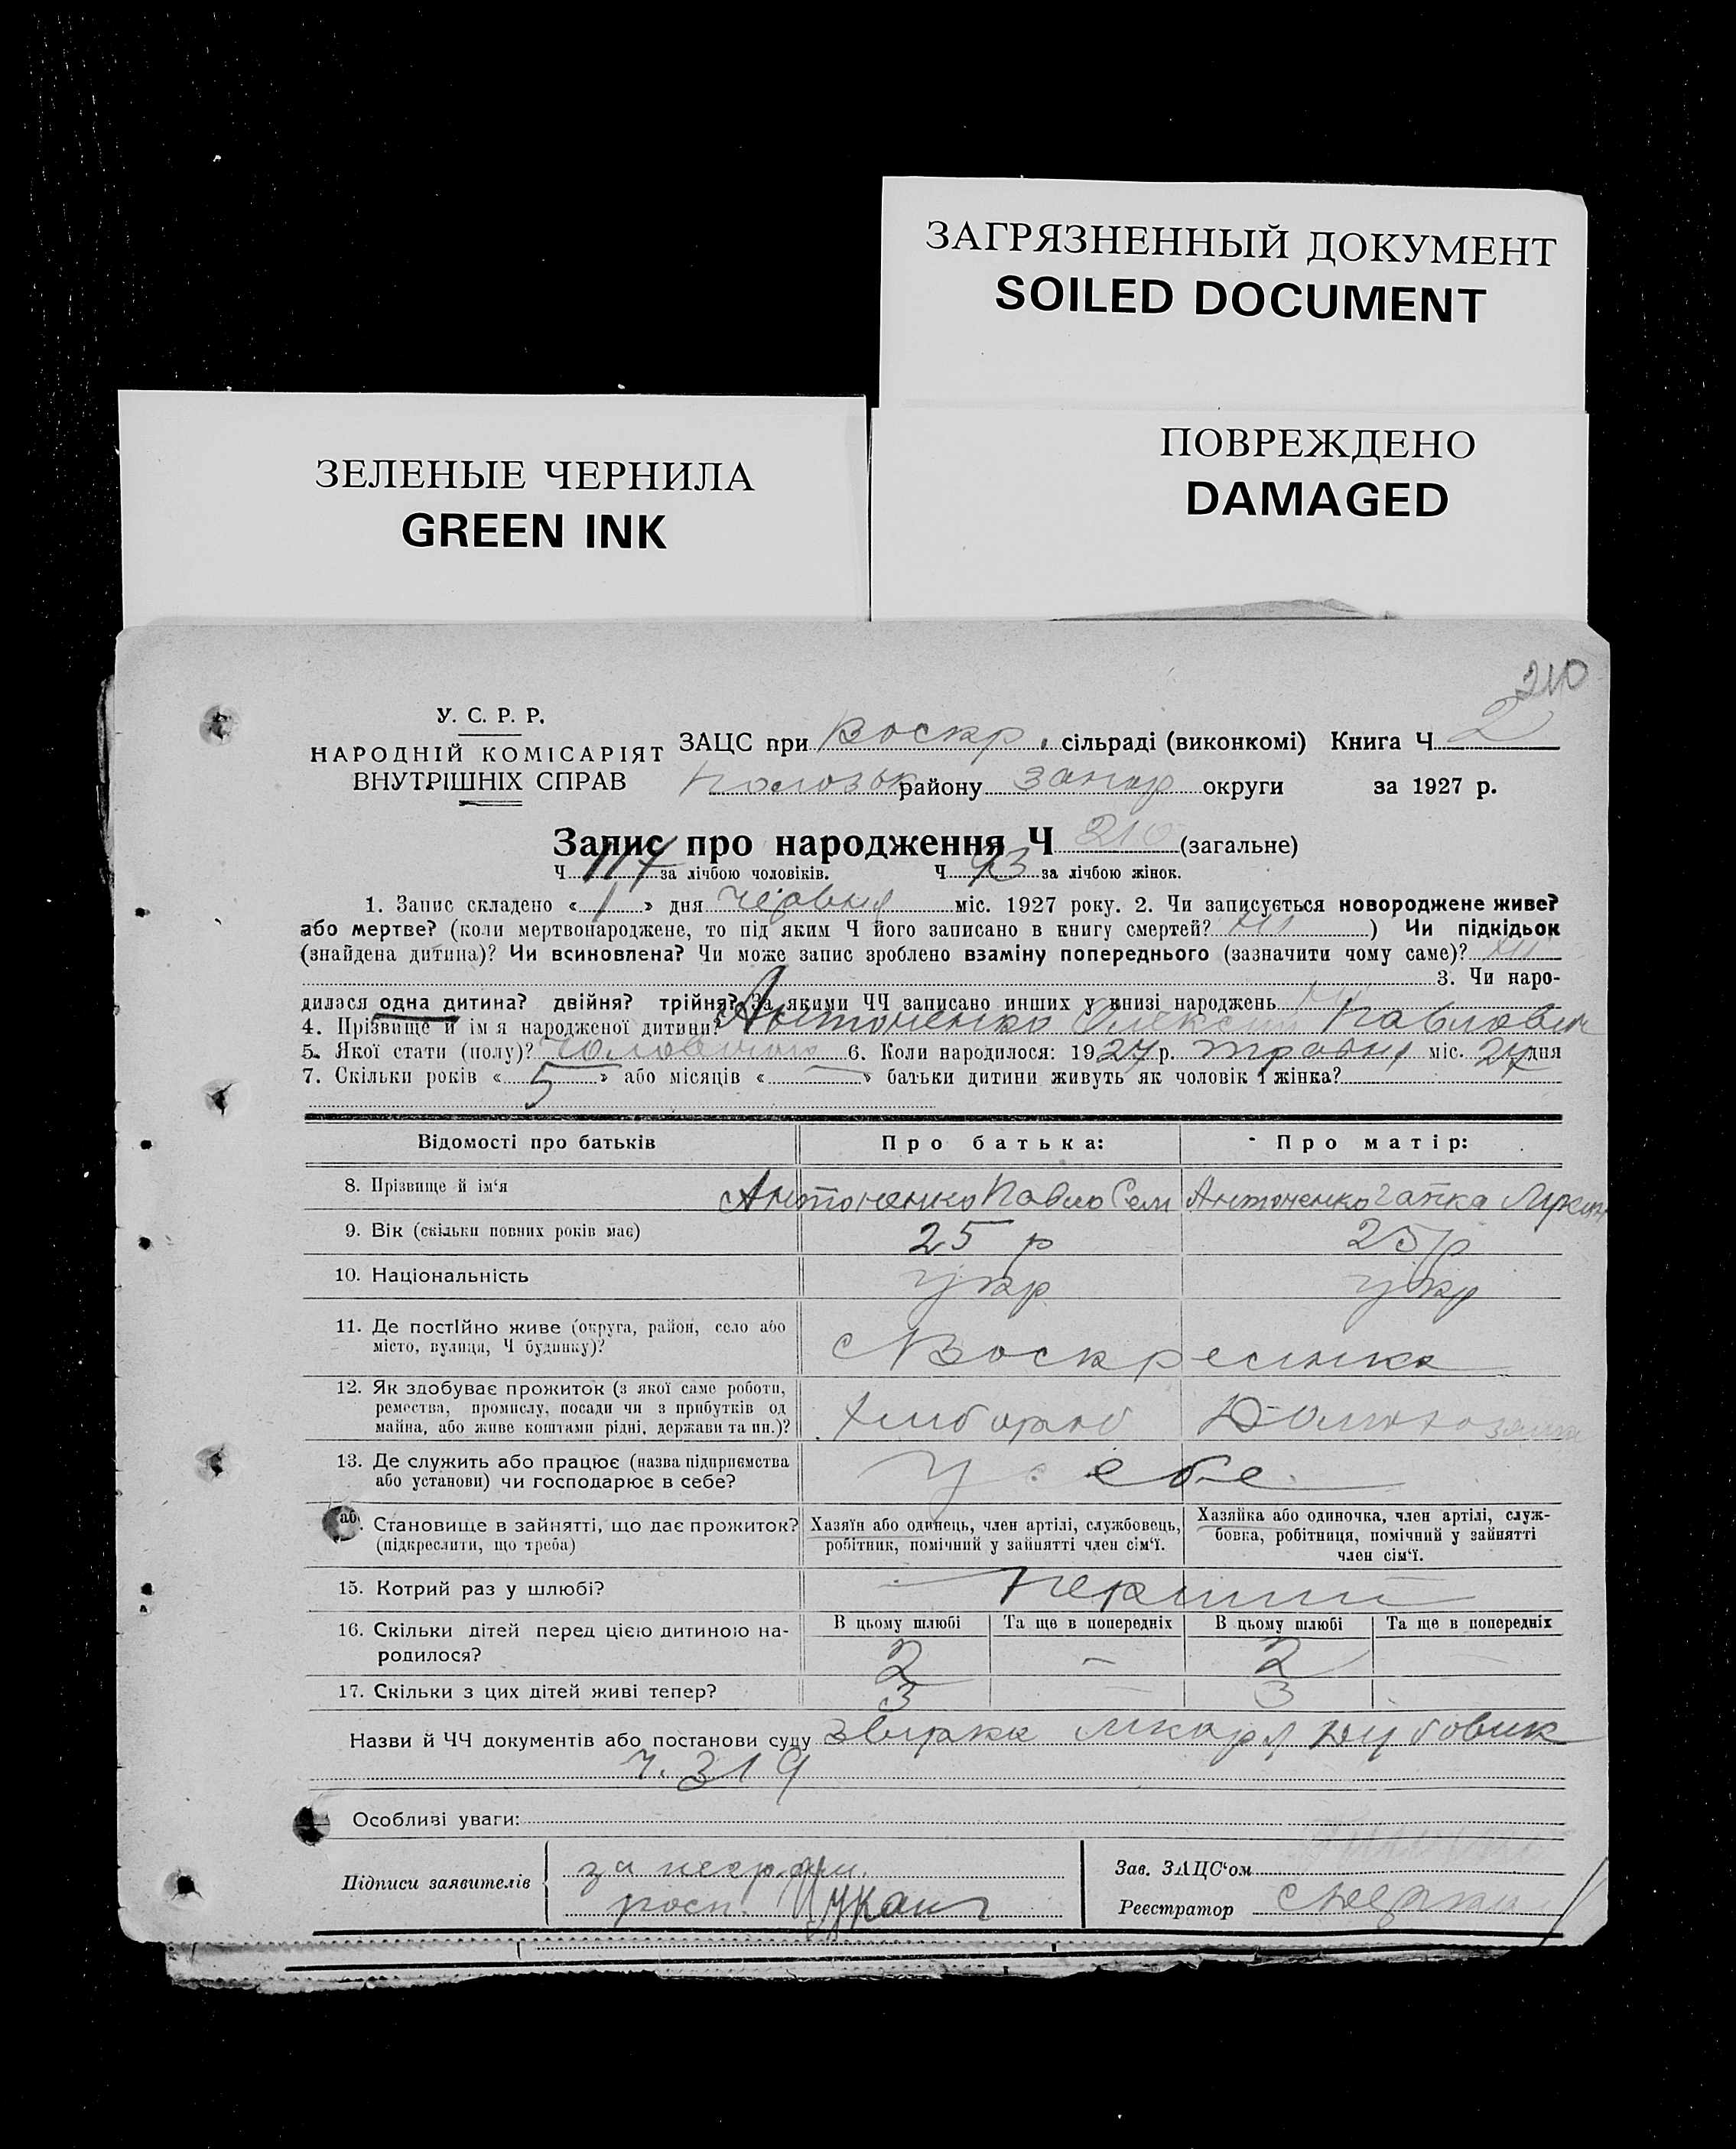 ЗАГРЯЗНЕННЫЙ ДОКУМЕНТ
SOILED DOCUMENT
ЗЕЛЕНЫЕ ЧЕРНИЛА
GREEN INK
ПОВРЕЖДЕНО
DAMAGED
210
У. С. Р. Р.
НАРОДНІЙ КОМІСАРІЯТ
ВНУТРІШНІХ СПРАВ
ЗАЦС при Воскр. сільраді (виконкомі) Книга Ч. 2
району Запор округи за 1927 р.
Запис про народження Ч 210 (загальне)
Ч. 117 за лічбою чоловіків. Ч. 93 за лічбою жінок.
1. Запис складено « 1 » дня червня міс. 1927 року. 2. Чи записується новороджене живе?
або мертве? (коли мертвонароджене, то під яким Ч його записано в книгу смертей? ні ) Чи підкідьок
(знайдена дитина)? Чи всиновлена? Чи може запис зроблено взаміну попереднього (зазначити чому саме)? ні
3. Чи наро-
дилася одна дитина? двійня? трійня? За якими ЧЧ записано инших у книзі народжень ні
4. Прізвище й імя народженої дитини? Антоненко Олексій Павлович
5. Якої стати (полу)? 6. Коли народилося: 1927 р. травня міс. 27 дня
7. Скільки років « 5 » або місяців « — » батьки дитини живуть як чоловік і жінка?
Відомості про батьків Про батька: Про матір:
8. Прізвище й ім'я Антоненко Павло Сем Антоненко Гапка
9. Вік (скільки повних років має) 25 р 25 р
10. Національність укр укр
11. Де постійно живе (округа, район, село або
місто, вулиця, Ч будинку)? с Воскресинка
12. Як здобуває прожиток (з якої саме роботи,
ремества, промислу, посади чи з прибутків од
майна, або живе коштами рідні, держави та ин.)? хлібороб
13. Де служить або працює (назва підприємства
або установи) чи господарює в себе? у себе
Становище в зайнятті, що дає прожиток?
(підкреслити, що треба)
Хазяїн або одинець, член артілі, службовець,
робітник, помічний у зайнятті член сім'ї.
Хазяйка або одиночка, член артілі, служ-
бовка, робітниця, помічний у зайнятті
член сім'ї.
15. Котрий раз у шлюбі? перший
16. Скільки дітей перед цією дитиною на-
родилося?
В цьому шлюбі Та ще в попередніх В цьому шлюбі Та ще в попередніх
2 — 2 —
17. Скільки з цих дітей живі тепер? 3 — 3
Назви й ЧЧ документів або постанови суду
ч. 319
Особливі уваги:
Підписи заявителів за
Зав. ЗАЦС'ом
Реєстратор